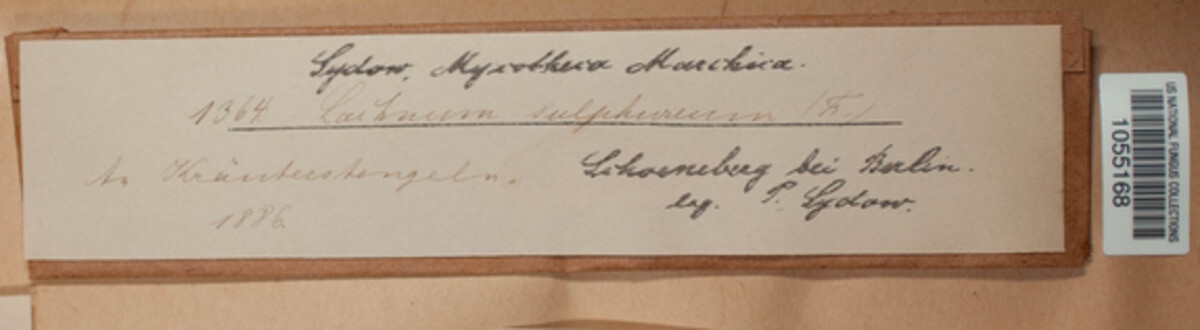 Sydow, Mycotheca Marchica.
1364 Lachnum sulphureum (F.)
An Kräuterstengeln. Schoeneberg bei Berlin.
1886 leg. P. Sydow.
US NATIONAL FUNGUS COLLECTIONS
1055168